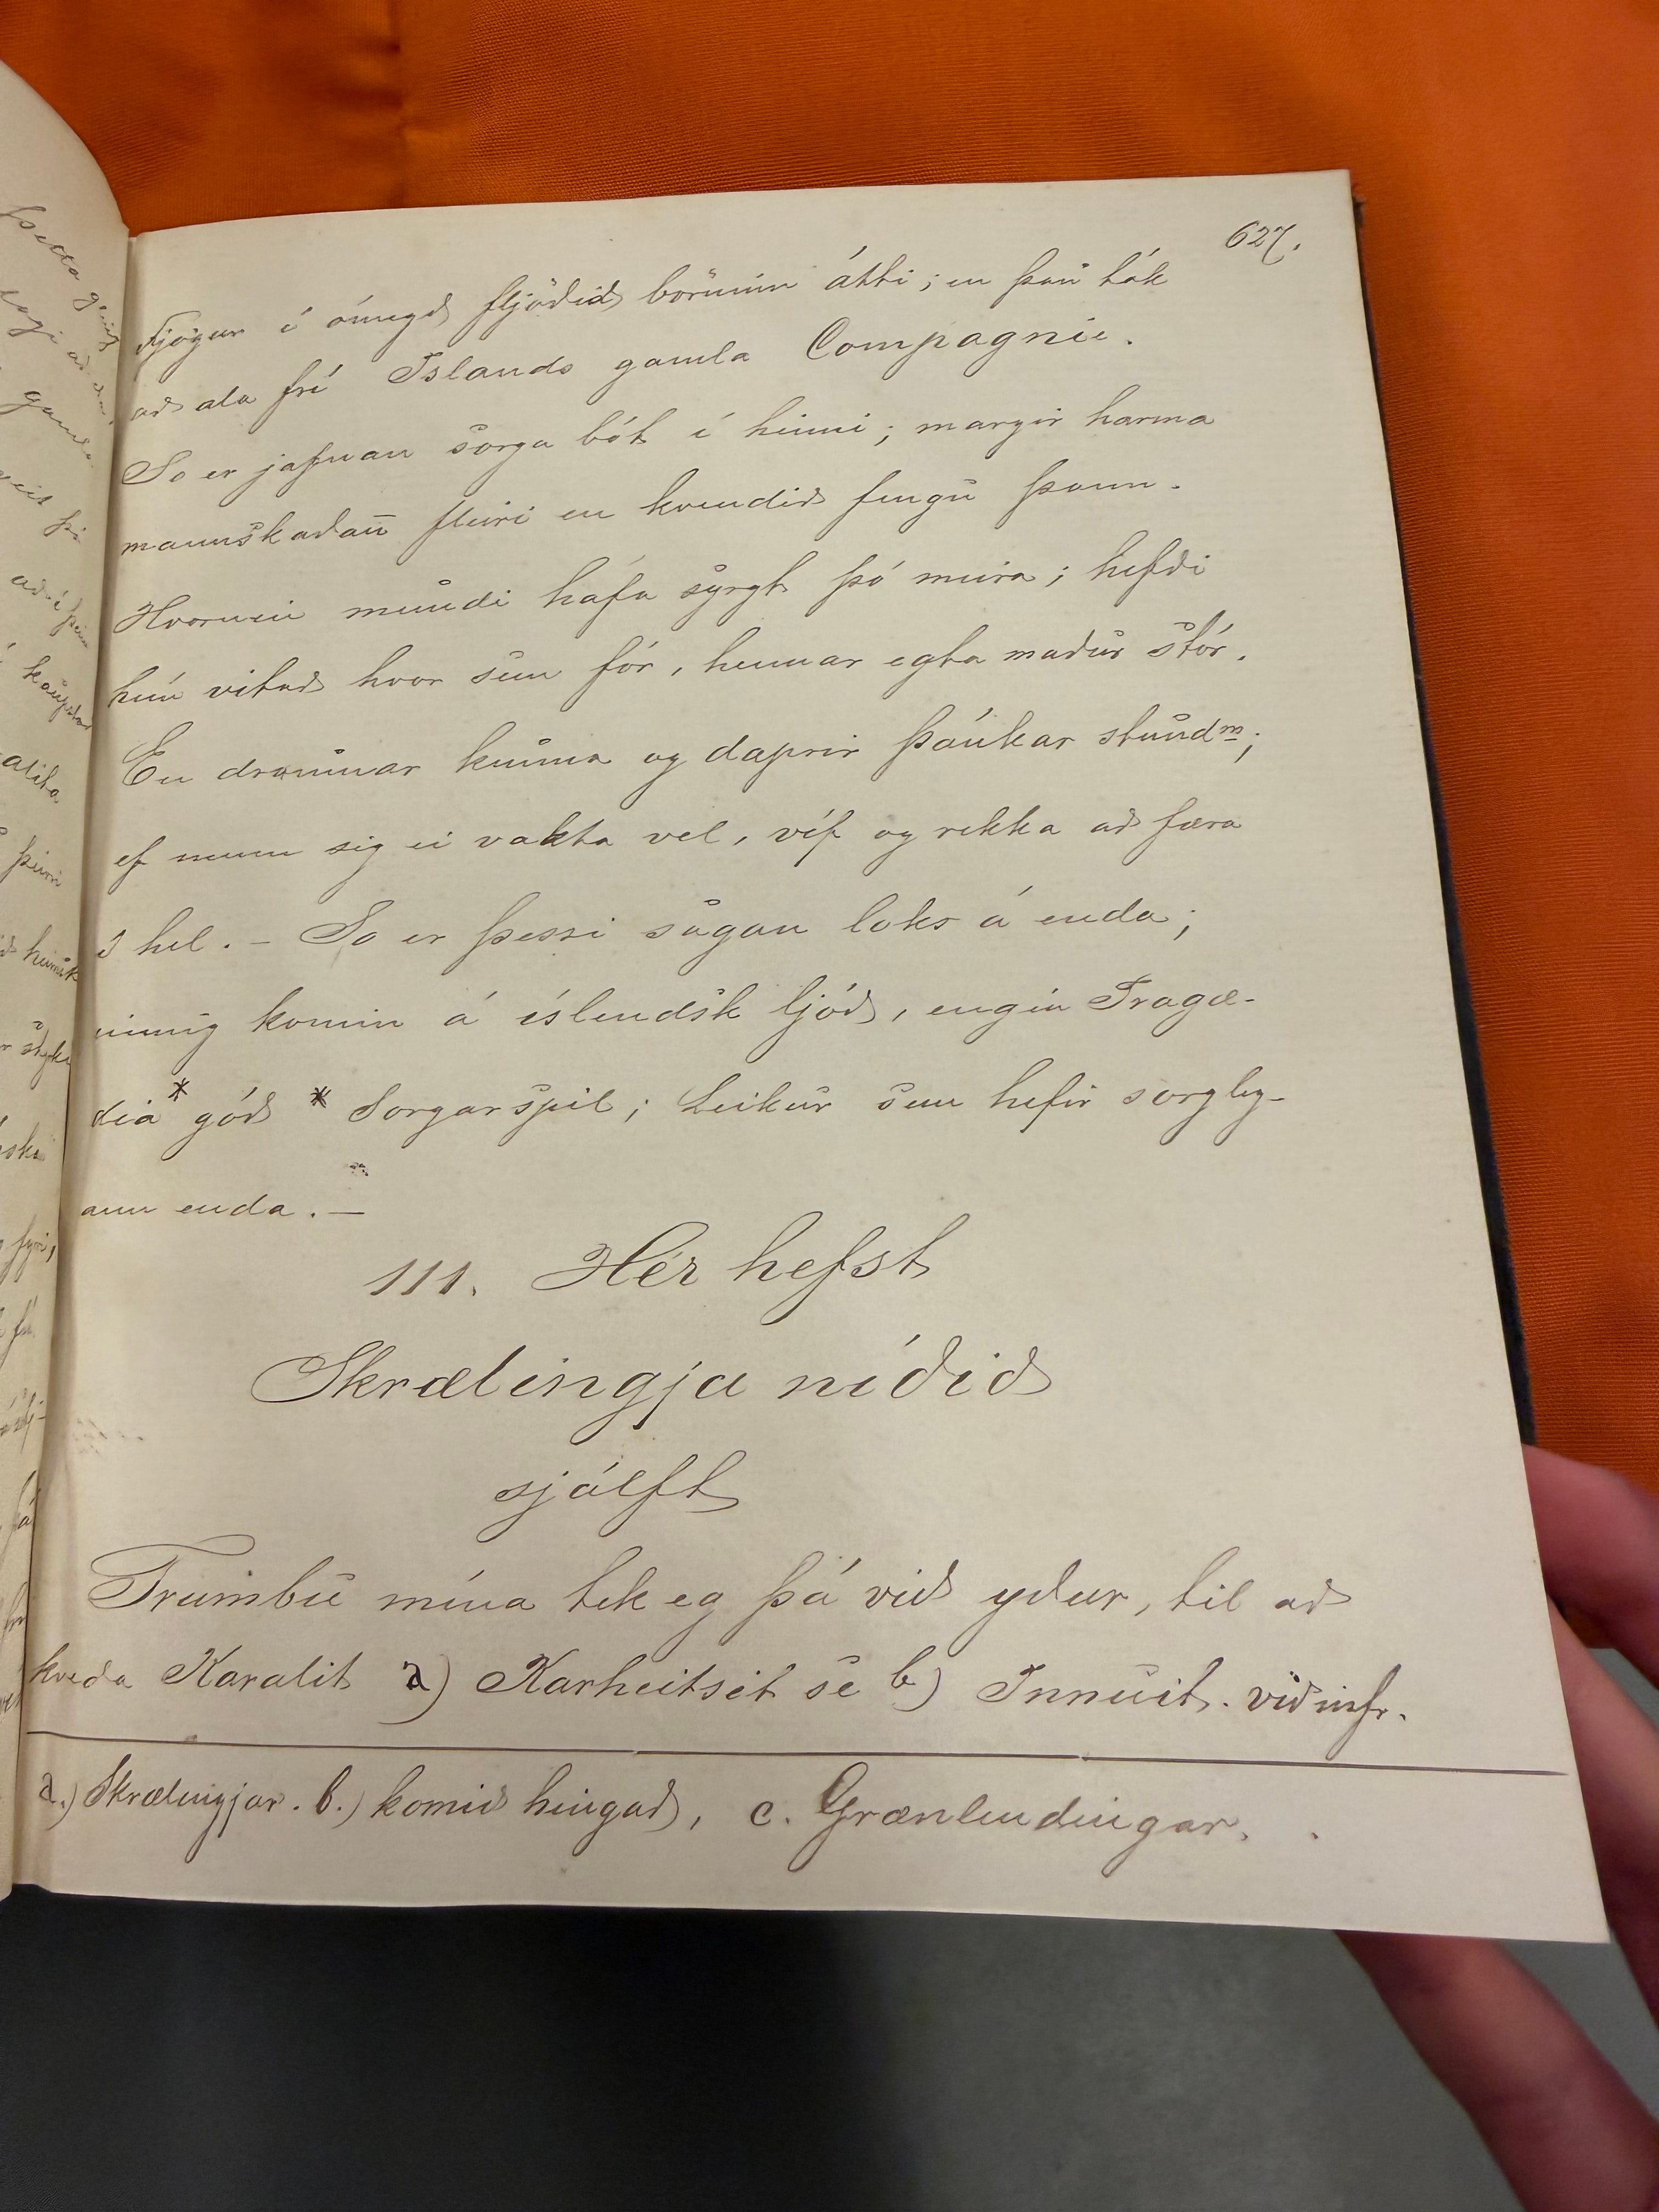 627.
Fjögur í ómegd fljóðið börninn átti; en þau tók
að ala frí Islands gamla Compagnie.
So er jafnan sorga bót í heimi; margir harma
mannskaðan̄ fleiri en kvendið fengu þann.
Hvornin mundi hafa syrgt þó meira; hefði
hún vitað hvor sem fór, hennar egta maður stór.
En draumar kunna og daprir þánkar stundm;
ef menn sig ei vakta vel, víf og rekka að færa
í hel. – So er þessi sagan loks á enda;
einnig komin á íslendsk ljóð, engin Tragæ-
dia* góð * Sorgarspil; Leikur sem hefir sorgleg-
ann enda. –
111. Hér hefst
Skrælingja níðið
sjálft
Trumbu mína tek eg þá við yður, til að
kveða Karalit a) Karheitsit se b) Innuit. við
a.) Skrælingjar. b.) komið hingað, c. Grænlendingar.